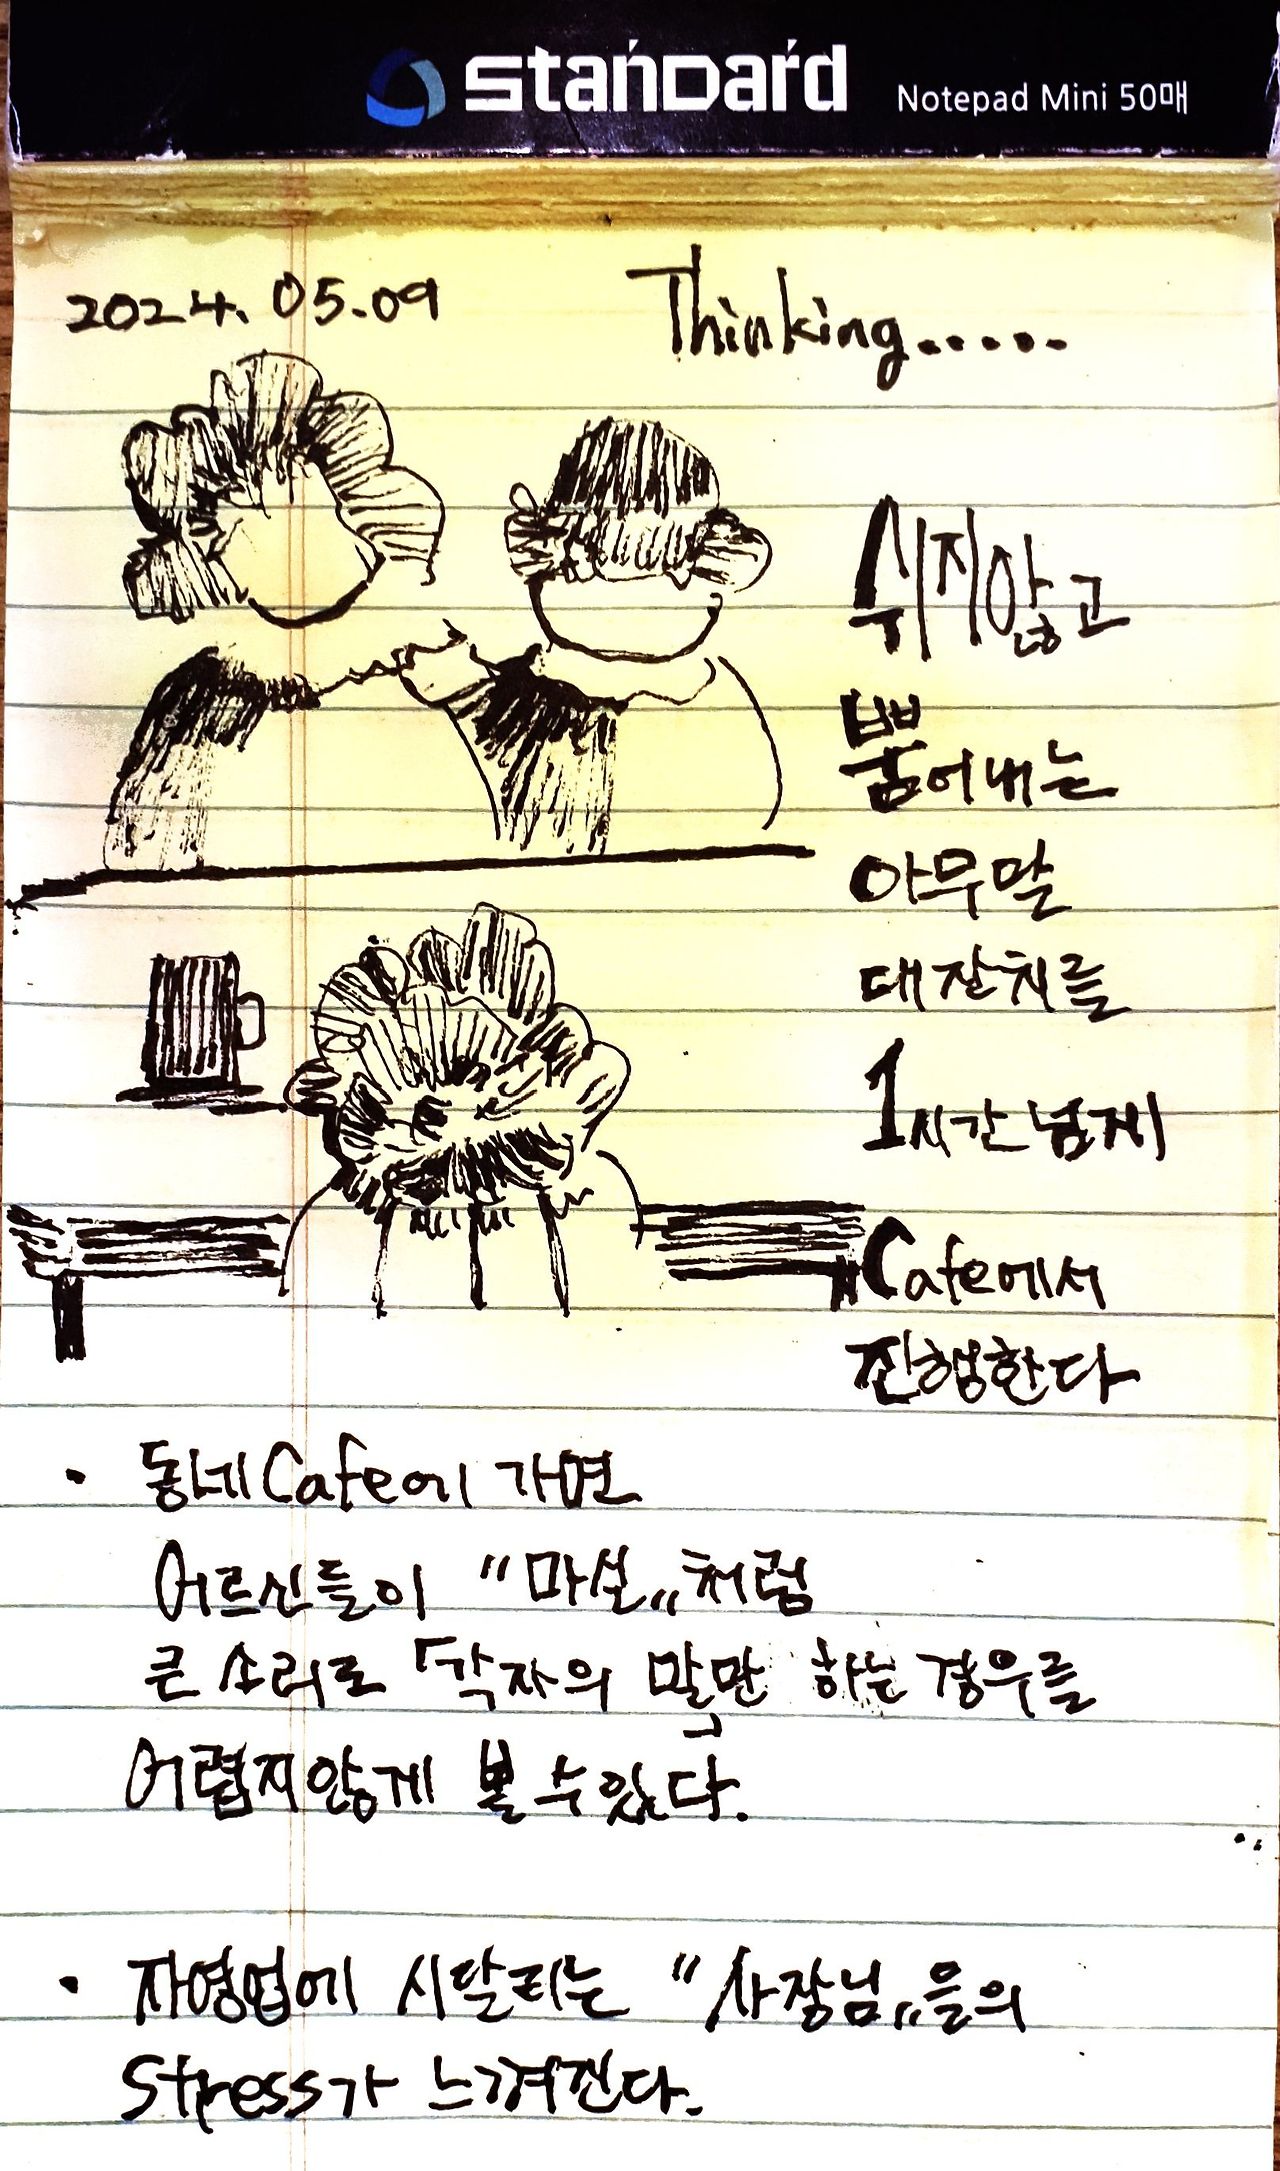 standard Notepad Mini 50매
2024. 05.09
Thinking.....
쉬지않고
뿜어내는
아무말
대잔치를
1시간 넘게
Cafe에서
진행한다
· 동네Cafe에 가면
어르신들이 "마실„처럼
큰 소리로 「각자의 말만」 하는 경우를
어렵지않게 볼 수 있다.
· 자영업에 시달리는 "사장님„들의
Stress가 느껴진다.